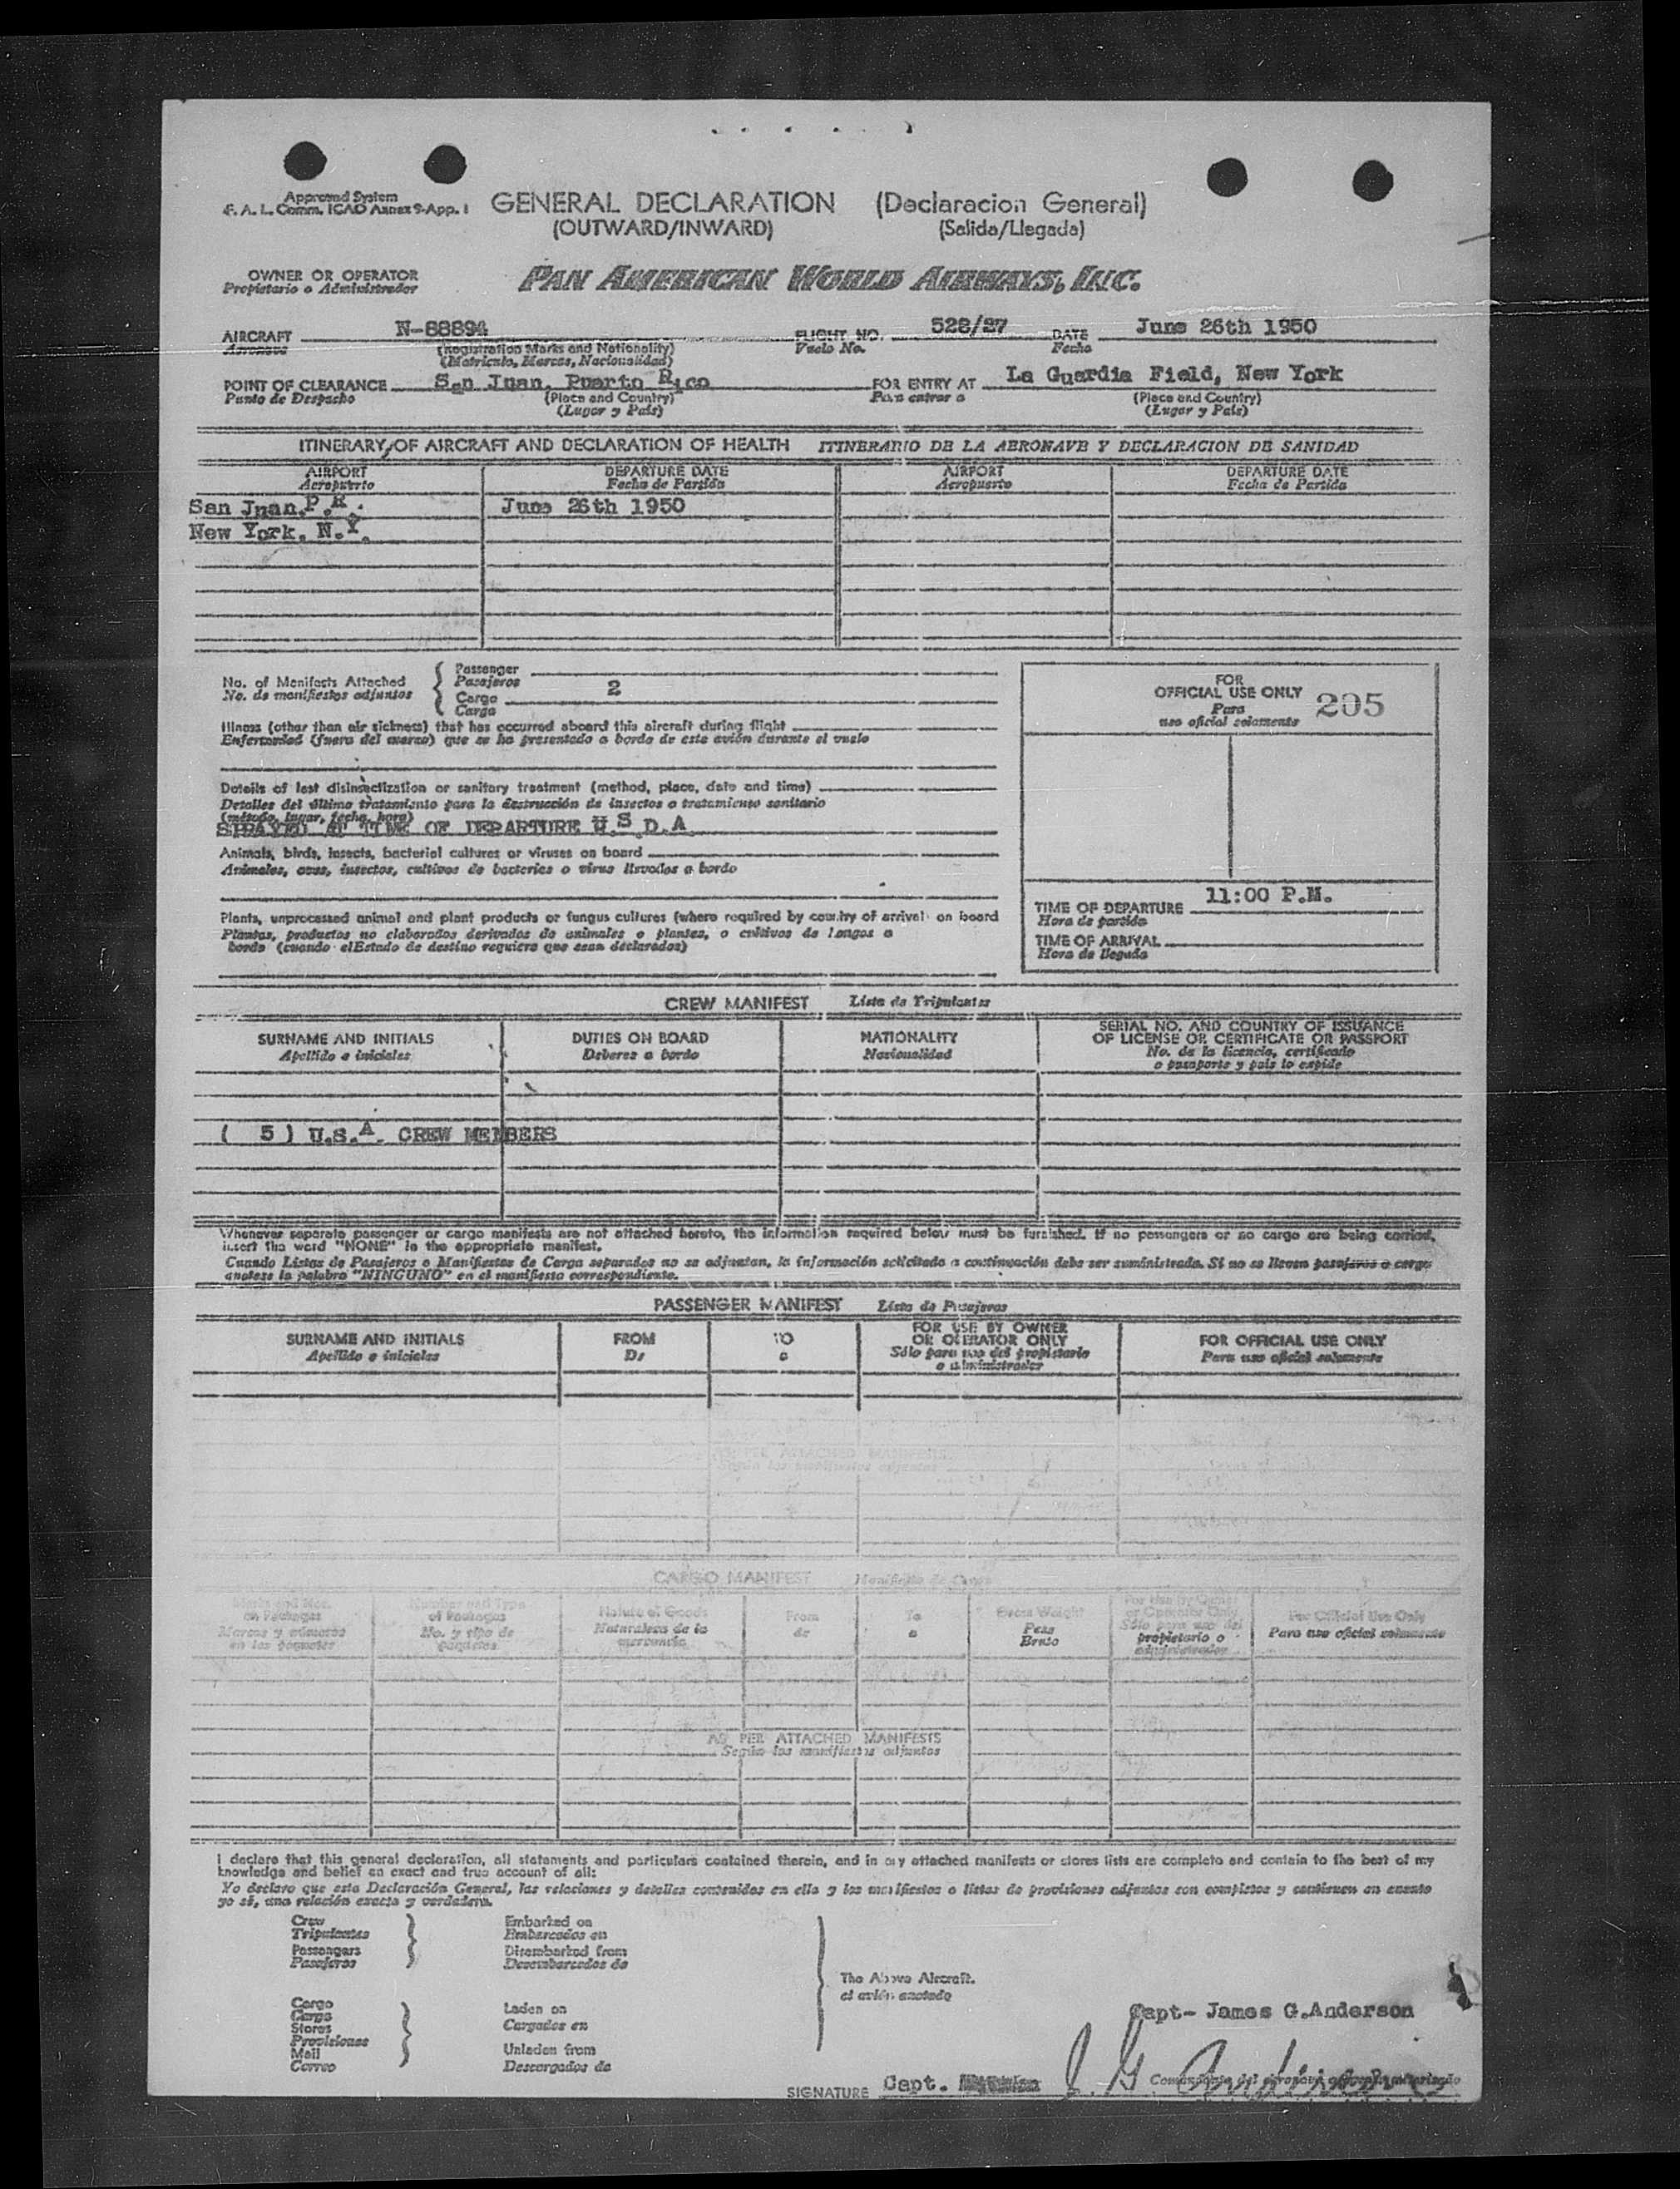 Approved System
F. A. L. Comm. ICAO Annex 9-App. 1
GENERAL DECLARATION (Declaracion General)
(OUTWARD/INWARD) (Salida/Llegada)
OWNER OR OPERATOR
Propietario o Administrador
PAN AMERICAN WORLD AIRWAYS, INC.
AIRCRAFT N-88894 FLIGHT NO. 526/27 DATE June 26th 1950
Aeronave (Registration Marks and Nationality) Vuelo No. Fecha
(Matricula, Marcas, Nacionalidad)
POINT OF CLEARANCE San Juan, Puerto Rico FOR ENTRY AT La Guardia Field, New York
Punto de Despacho (Place and Country) Para entrar a (Place and Country)
(Lugar y País) (Lugar y País)
ITINERARY OF AIRCRAFT AND DECLARATION OF HEALTH ITINERARIO DE LA AERONAVE Y DECLARACION DE SANIDAD
AIRPORT DEPARTURE DATE AIRPORT DEPARTURE DATE
Aeropuerto Fecha de Partida Aeropuerto Fecha de Partida
San Juan,P.R. June 26th 1950
New York, N.Y.
No. of Manifests Attached
No. de manifiestos adjuntos
Passenger
Pasajeros
Cargo 2
Carga
Illness (other than air sickness) that has occurred aboard this aircraft during flight
Enfermedad (fuera del mareo) que se ha presentado a bordo de este avión durante el vuelo
Details of last disinsectization or sanitary treatment (method, place, date and time)
Detalles del último tratamiento para la destrucción de insectos o tratamiento sanitario
(método, lugar, fecha, hora)
SPRAYED AT TIME OF DEPARTURE U.S.D.A
Animals, birds, insects, bacterial cultures or viruses on board
Animales, aves, insectos, cultivos de bacterias o virus llevados a bordo
Plants, unprocessed animal and plant products or fungus cultures (where required by country of arrival) on board
Plantas, productos no elaborados derivados de animales o plantas, o cultivos de hongos a
bordo (cuando el Estado de destino requiera que sean declarados)
FOR
OFFICIAL USE ONLY 205
Para
uso oficial solamente
TIME OF DEPARTURE 11:00 P.M.
Hora de partida
TIME OF ARRIVAL
Hora de llegada
CREW MANIFEST Lista de Tripulantes
SURNAME AND INITIALS DUTIES ON BOARD NATIONALITY SERIAL NO. AND COUNTRY OF ISSUANCE
OF LICENSE OR CERTIFICATE OR PASSPORT
Apellido e iniciales Deberes a bordo Nacionalidad No. de la licencia, certificado
o pasaporte y país lo expide
( 5 ) U.S.A. CREW MEMBERS
Whenever separate passenger or cargo manifests are not attached hereto, the information required below must be furnished. If no passengers or no cargo are being carried,
insert the word "NONE" in the appropriate manifest.
Cuando Listas de Pasajeros o Manifiestos de Carga separados no se adjuntan, la información solicitada a continuación debe ser suministrada. Si no se llevan pasajeros o carga
anótese la palabra "NINGUNO" en el manifiesto correspondiente.
PASSENGER MANIFEST Lista de Pasajeros
SURNAME AND INITIALS FROM TO FOR USE BY OWNER
OR OPERATOR ONLY FOR OFFICIAL USE ONLY
Apellido e iniciales De a Sólo para uso del propietario
o administrador Para uso oficial solamente
AS PER ATTACHED MANIFESTS
Según los manifiestos adjuntos
CARGO MANIFEST Manifiesto de Carga
Marks and Nos.
on Packages
Marcas y números
en los paquetes
Number and Type
of Packages
No. y tipo de
paquetes
Nature of Goods
Naturaleza de la
mercancía
From
de
To
a
Gross Weight
Peso
Bruto
For Use by Owner
or Operator Only
Sólo para uso del
propietario o
administrador
For Official Use Only
Para uso oficial solamente
AS PER ATTACHED MANIFESTS
Según los manifiestos adjuntos
I declare that this general declaration, all statements and particulars contained therein, and in any attached manifests or stores lists are complete and contain to the best of my
knowledge and belief an exact and true account of all:
Yo declaro que esta Declaración General, las relaciones y detalles contenidos en ella y los manifiestos o listas de provisiones adjuntos son completos y contienen en cuanto
yo sé, una relación exacta y verdadera.
Crew
Tripulantes
Passengers
Pasajeros
Embarked on
Embarcados en
Disembarked from
Desembarcados de
The Above Aircraft.
el avión anotado
Cargo
Carga
Stores
Provisiones
Mail
Correo
Laden on
Cargados en
Unladen from
Descargados de
Capt- James G.Anderson
SIGNATURE Capt. J. G. Anderson